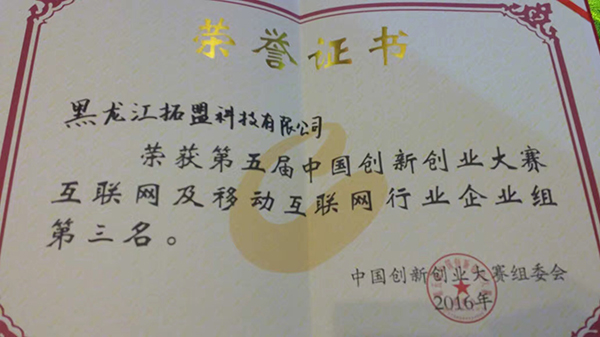 荣誉证书
黑龙江拓盟科技有限公司
荣获第五届中国创新创业大赛
互联网及移动互联网行业企业组
第三名。
中国创新创业大赛组委会
2016年